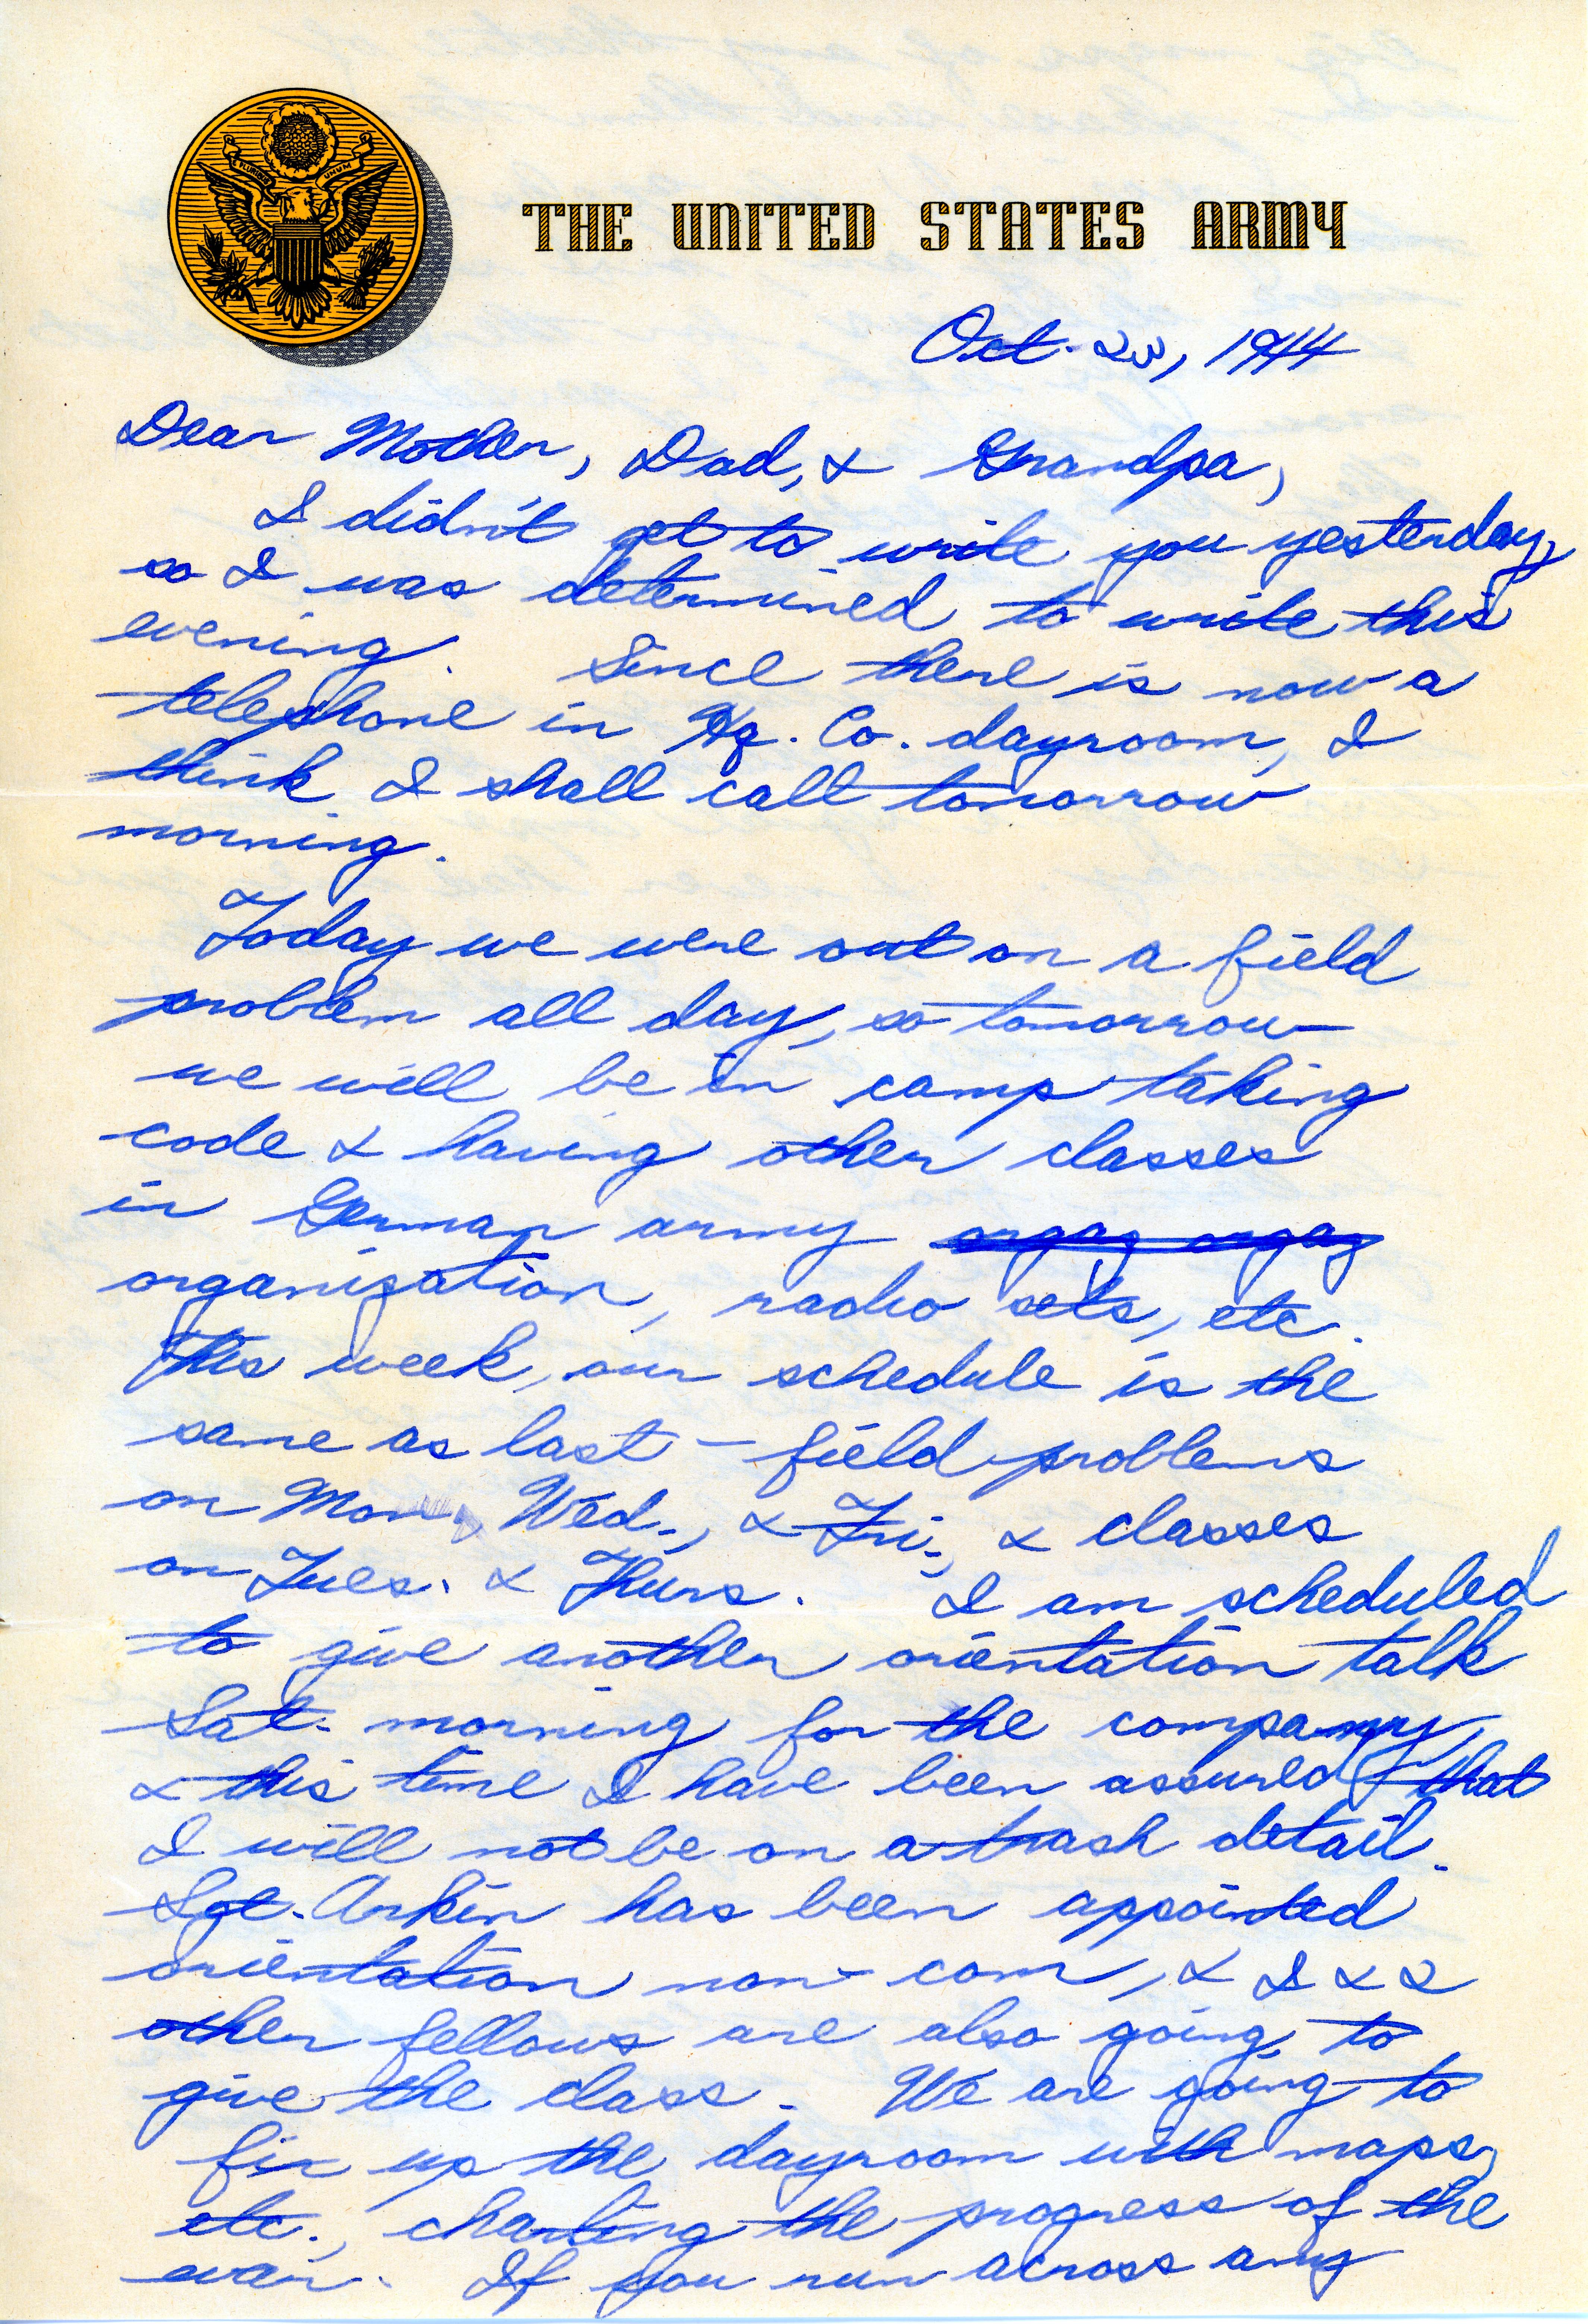 E PLURIBUS UNUM
THE UNITED STATES ARMY
Oct. 23, 1944
Dear Mother, Dad, & Grandpa,
I didn't get to write you yesterday,
so I was determined to write this
evening. Since there is now a
telephone in Hq. Co. dayroom, I
think I shall call tomorrow
morning.
Today we were out on a field
problem all day, so tomorrow
we will be in camp taking
code & having other classes
in German army orgag orgag
organization, radio sets, etc.
This week, our schedule is the
same as last – field problems
on Mon., Wed., & Fri., & classes
on Tues. & Thurs. I am scheduled
to give another orientation talk
Sat. morning for the company,
& this time I have been assured that
I will not be on a trash detail.
Sgt. Arkin has been appointed
orientation non-com, & I & 2
other fellows are also going to
give the class. We are going to
fix up the dayroom with maps,
etc., charting the progress of the
war. If you run across any